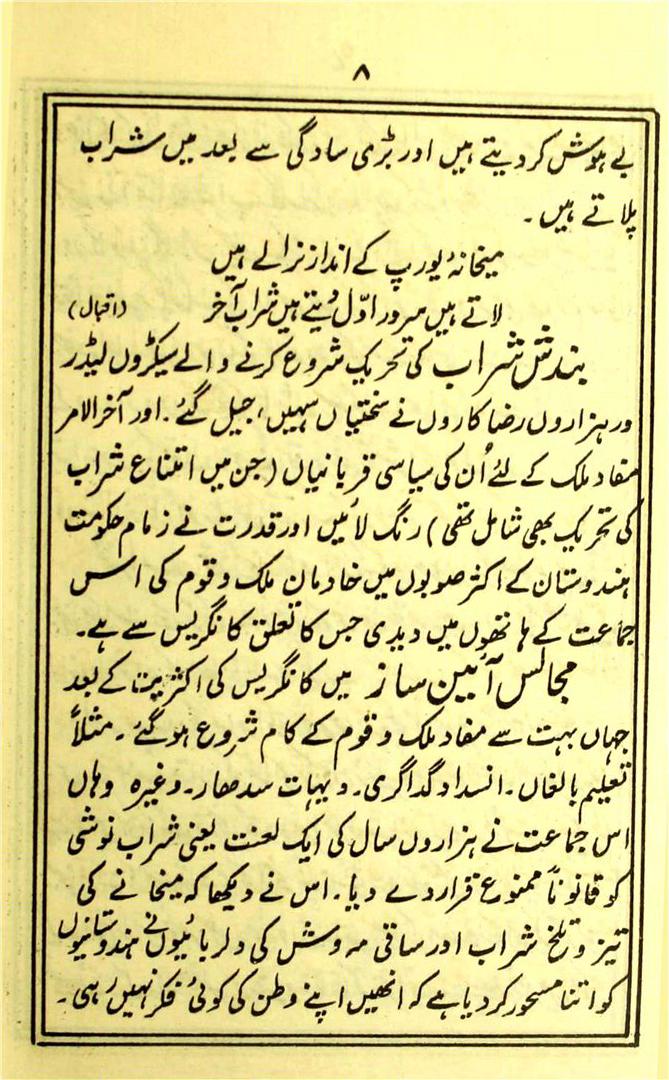 ۸
بے ہوش کر دیتے ہیں اور بڑی سادگی سے بعد میں شراب
پلاتے ہیں۔
میخانۂ یورپ کے انداز نرالے ہیں
لاتے ہیں سرور اوّل دیتے ہیں شراب آخر (اقبال)
بندش شراب کی تحریک شروع کرنے والے سیکڑوں لیڈر
ور ہزاروں رضا کاروں نے سختیاں سہیں، جیل گئے۔ اور آخر الامر
مفاد ملک کے لئے اُن کی سیاسی قربانیاں (جن میں امتناع شراب
کی تحریک بھی شامل تھی) رنگ لائیں اور قدرت نے زمام حکومت
ہندوستان کے اکثر صوبوں میں خادمان ملک و قوم کی اس
جماعت کے ہاتھوں میں دیدی جس کا تعلق کانگریس سے ہے۔
مجالس آئین ساز میں کانگریس کی اکثریت کے بعد
جہاں بہت سے مفاد ملک و قوم کے کام شروع ہو گئے۔ مثلاً
تعلیم بالغاں۔ انسداد گداگری۔ دیہات سدھار۔ وغیرہ وہاں
اس جماعت نے ہزاروں سال کی ایک لعنت یعنی شراب نوشی
کو قانوناً ممنوع قرار دے دیا۔ اس نے دیکھا کہ میخانے کی
تیز و تلخ شراب اور ساقی مہ وش کی دلربائیوں نے ہندوستانیوں
کو اتنا مسحور کر دیا ہے کہ انھیں اپنے وطن کی کوئی فکر نہیں رہی۔